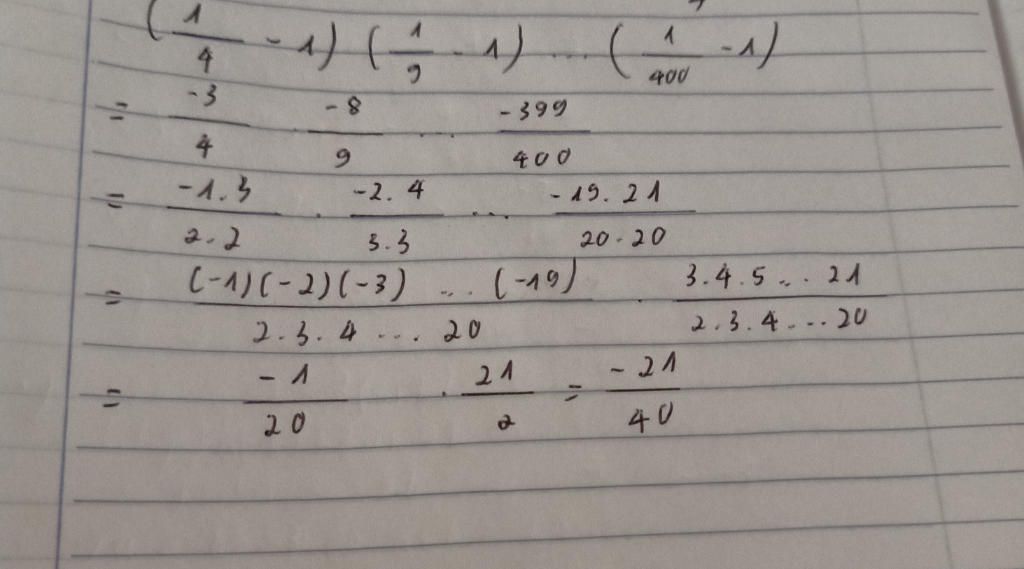 (1/4 - 1) (1/9 - 1) ... (1/400 - 1)
= -3/4 . -8/9 ... -399/400
= -1.3/2.2 . -2.4/3.3 ... -19.21/20.20
= (-1)(-2)(-3) ... (-19)/2.3.4 ... 20 . 3.4.5 ... 21/2.3.4 ... 20
= -1/20 . 21/2 = -21/40